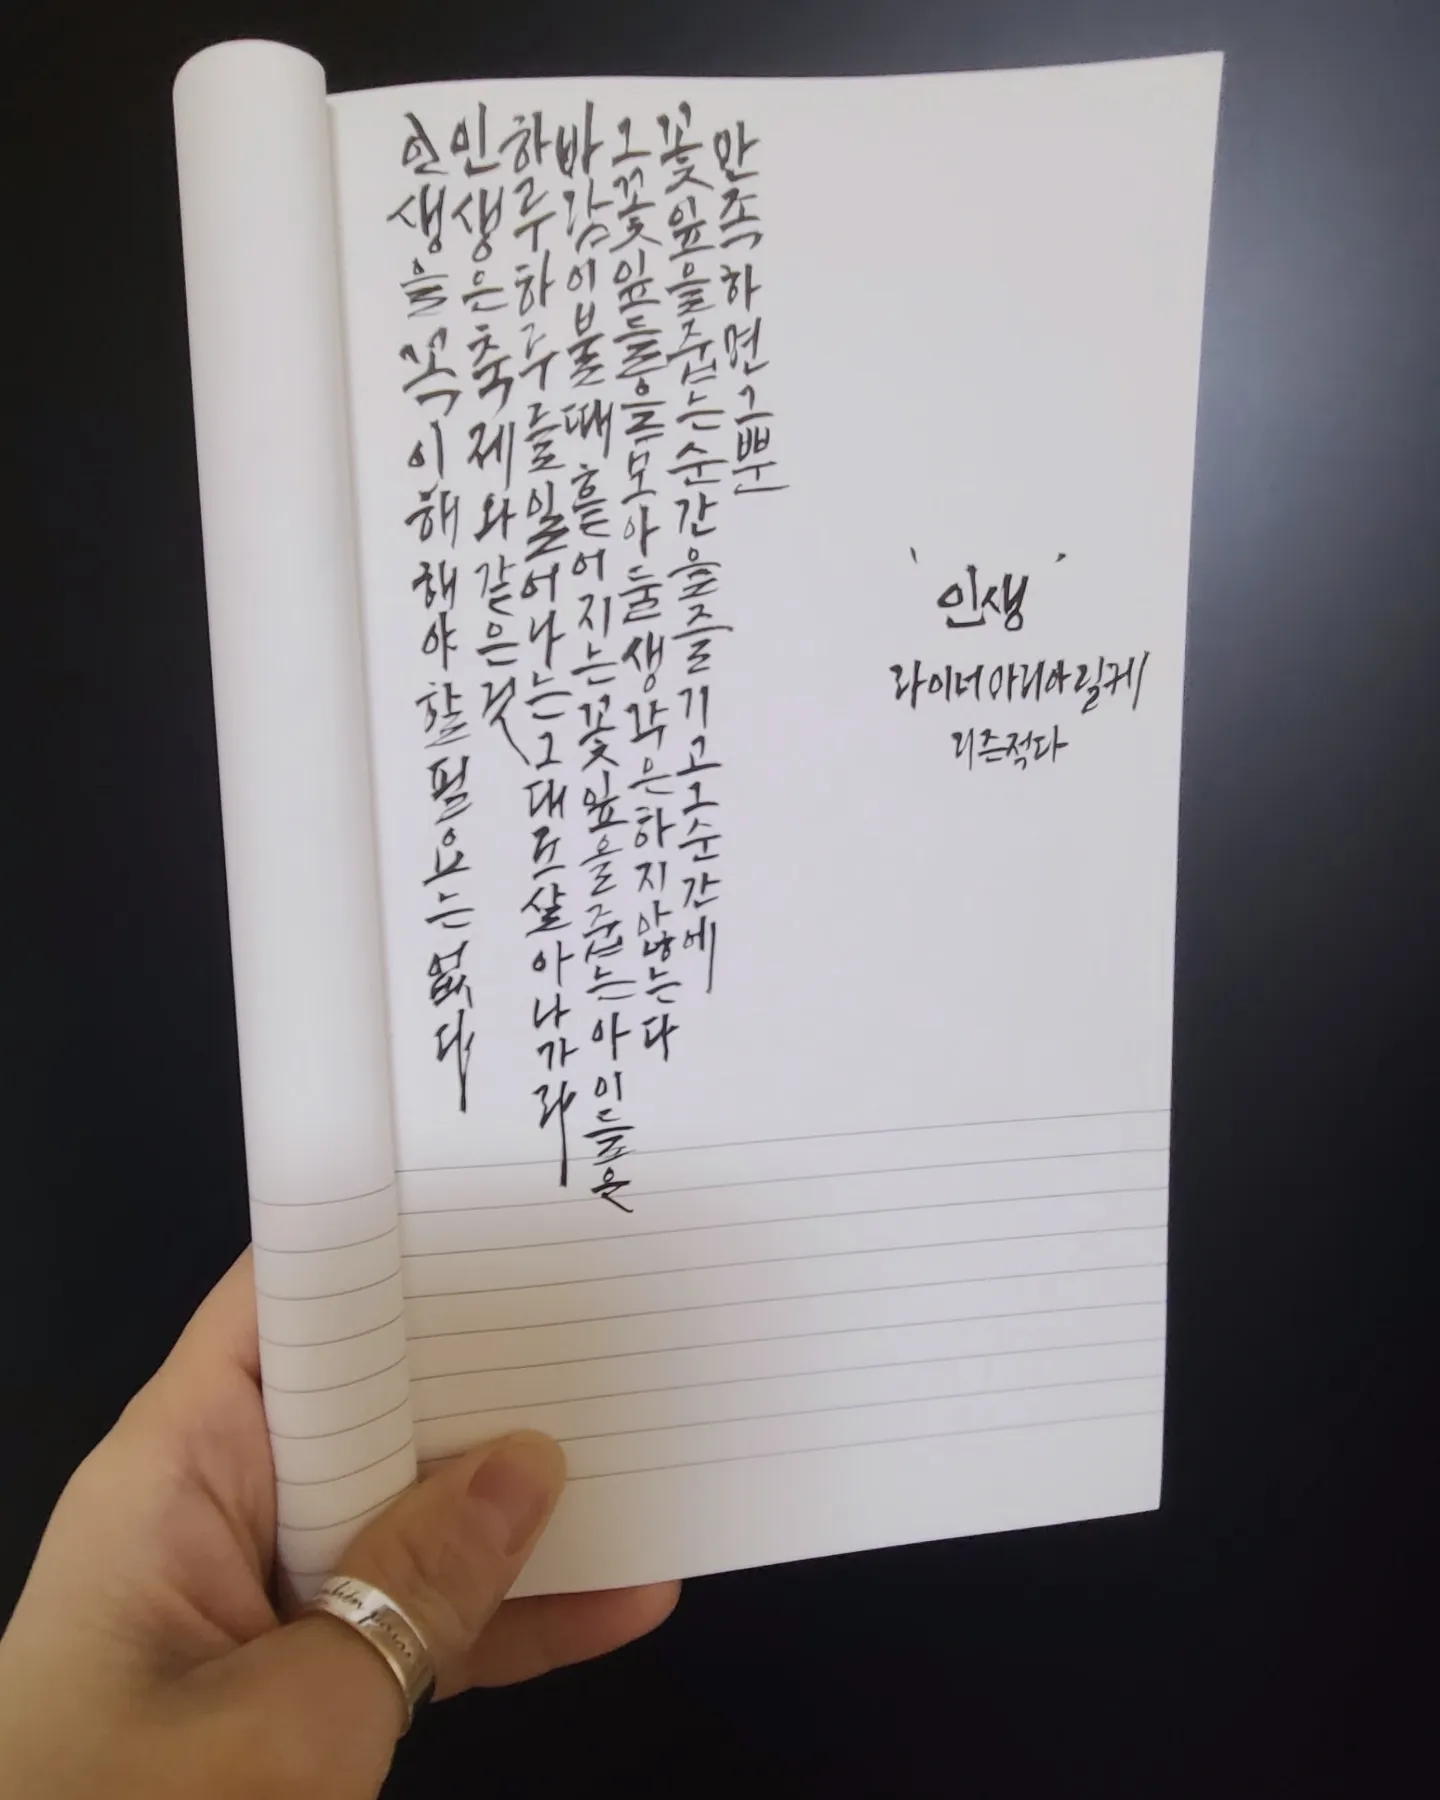 인생을꼭이해해야할필요는없다
인생은축제와같은것
하루하루를일어나는그대로살아나가라
바람이불때흩어지는꽃잎을줍는아이들은
그꽃잎들을모아둘생각은하지않는다
꽃잎을줍는순간을즐기고그순간에
만족하면그뿐
'인생'
라이너마리아릴케
리즌적다